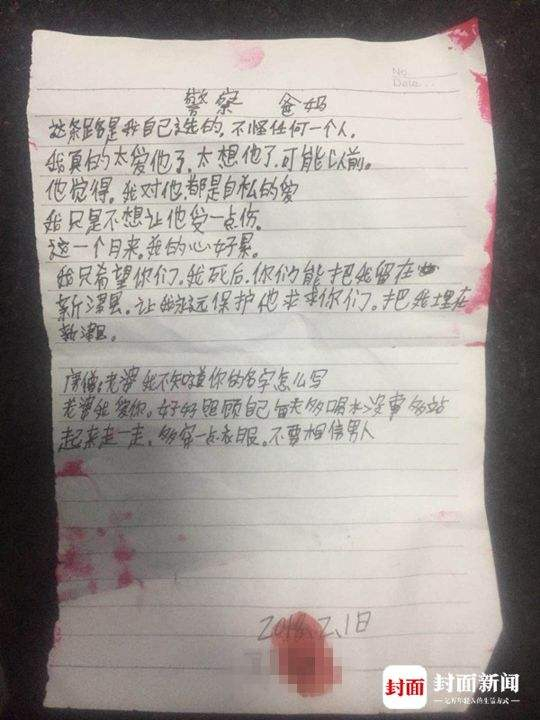 No.
Date
警察 爸妈
这条路是我自己选的，不怪任何一个人。
我真的太爱他了，太想他了，可能以前。
他觉得。我对他，都是自私的爱
我只是不想让他受一点伤。
这一个月来，我的心好累。
我只希望你们。我死后，你们能把我留在
新津县。让我永远保护他求求你们。把我埋在
新津县。
老婆我不知道你的名字怎么写
老婆我爱你。好好照顾自己每天多喝水没事多站
起来走一走，多穿一点衣服。不要相信男人
2018.2.1日
封面 封面新闻